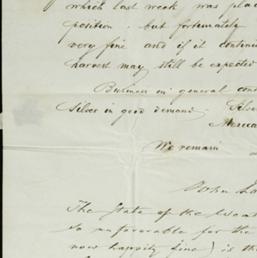 which last week was pla
position, but fortunately
very fine and if it continu
harvest may still be expected
Business in general cont
Silver in good demand.
We remain
John
The State of the
so unfavorable for the
now happily fine) is th